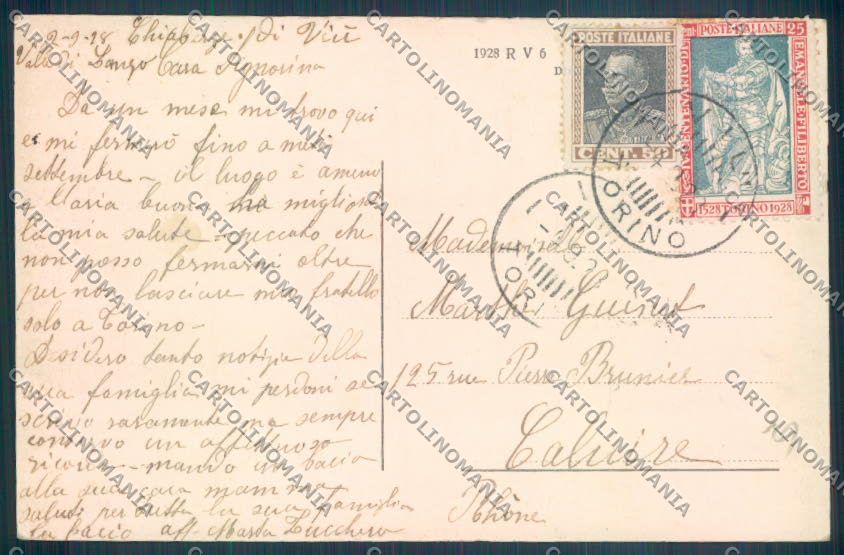 2-9-28 Chiaberge di Viù
Valle di Lanzo Casa Signorina
Da un mese mi trovo qui
e mi fermerò fino a metà
settembre - il luogo è ameno
l'aria buona ha migliorato
la mia salute - peccato che
non posso fermarmi oltre
per non lasciare mio fratello
solo a Torino -
Desidero tanto notizie della
sua famiglia mi perdoni se
scrivo raramente ma sempre
conservo un affettuoso
ricordo - mando un bacio
alla sua cara mamma
saluti per tutta la sua famiglia
un bacio aff. Marta Zucchero
1928 R V 6
POSTE ITALIANE
CENT. 50
POSTE ITALIANE 25
EMANUELE FILIBERTO
1528 TORINO 1928
TORINO
TOR
Mademoiselle
Marthe Guinet
125 rue Pierre Brunier
Caluire
Rhône
CARTOLINOMANIA